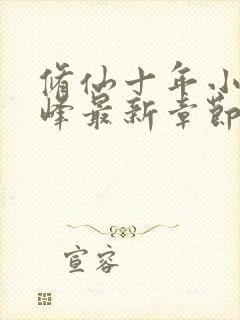 修仙十年小
峰最新章节
宣容